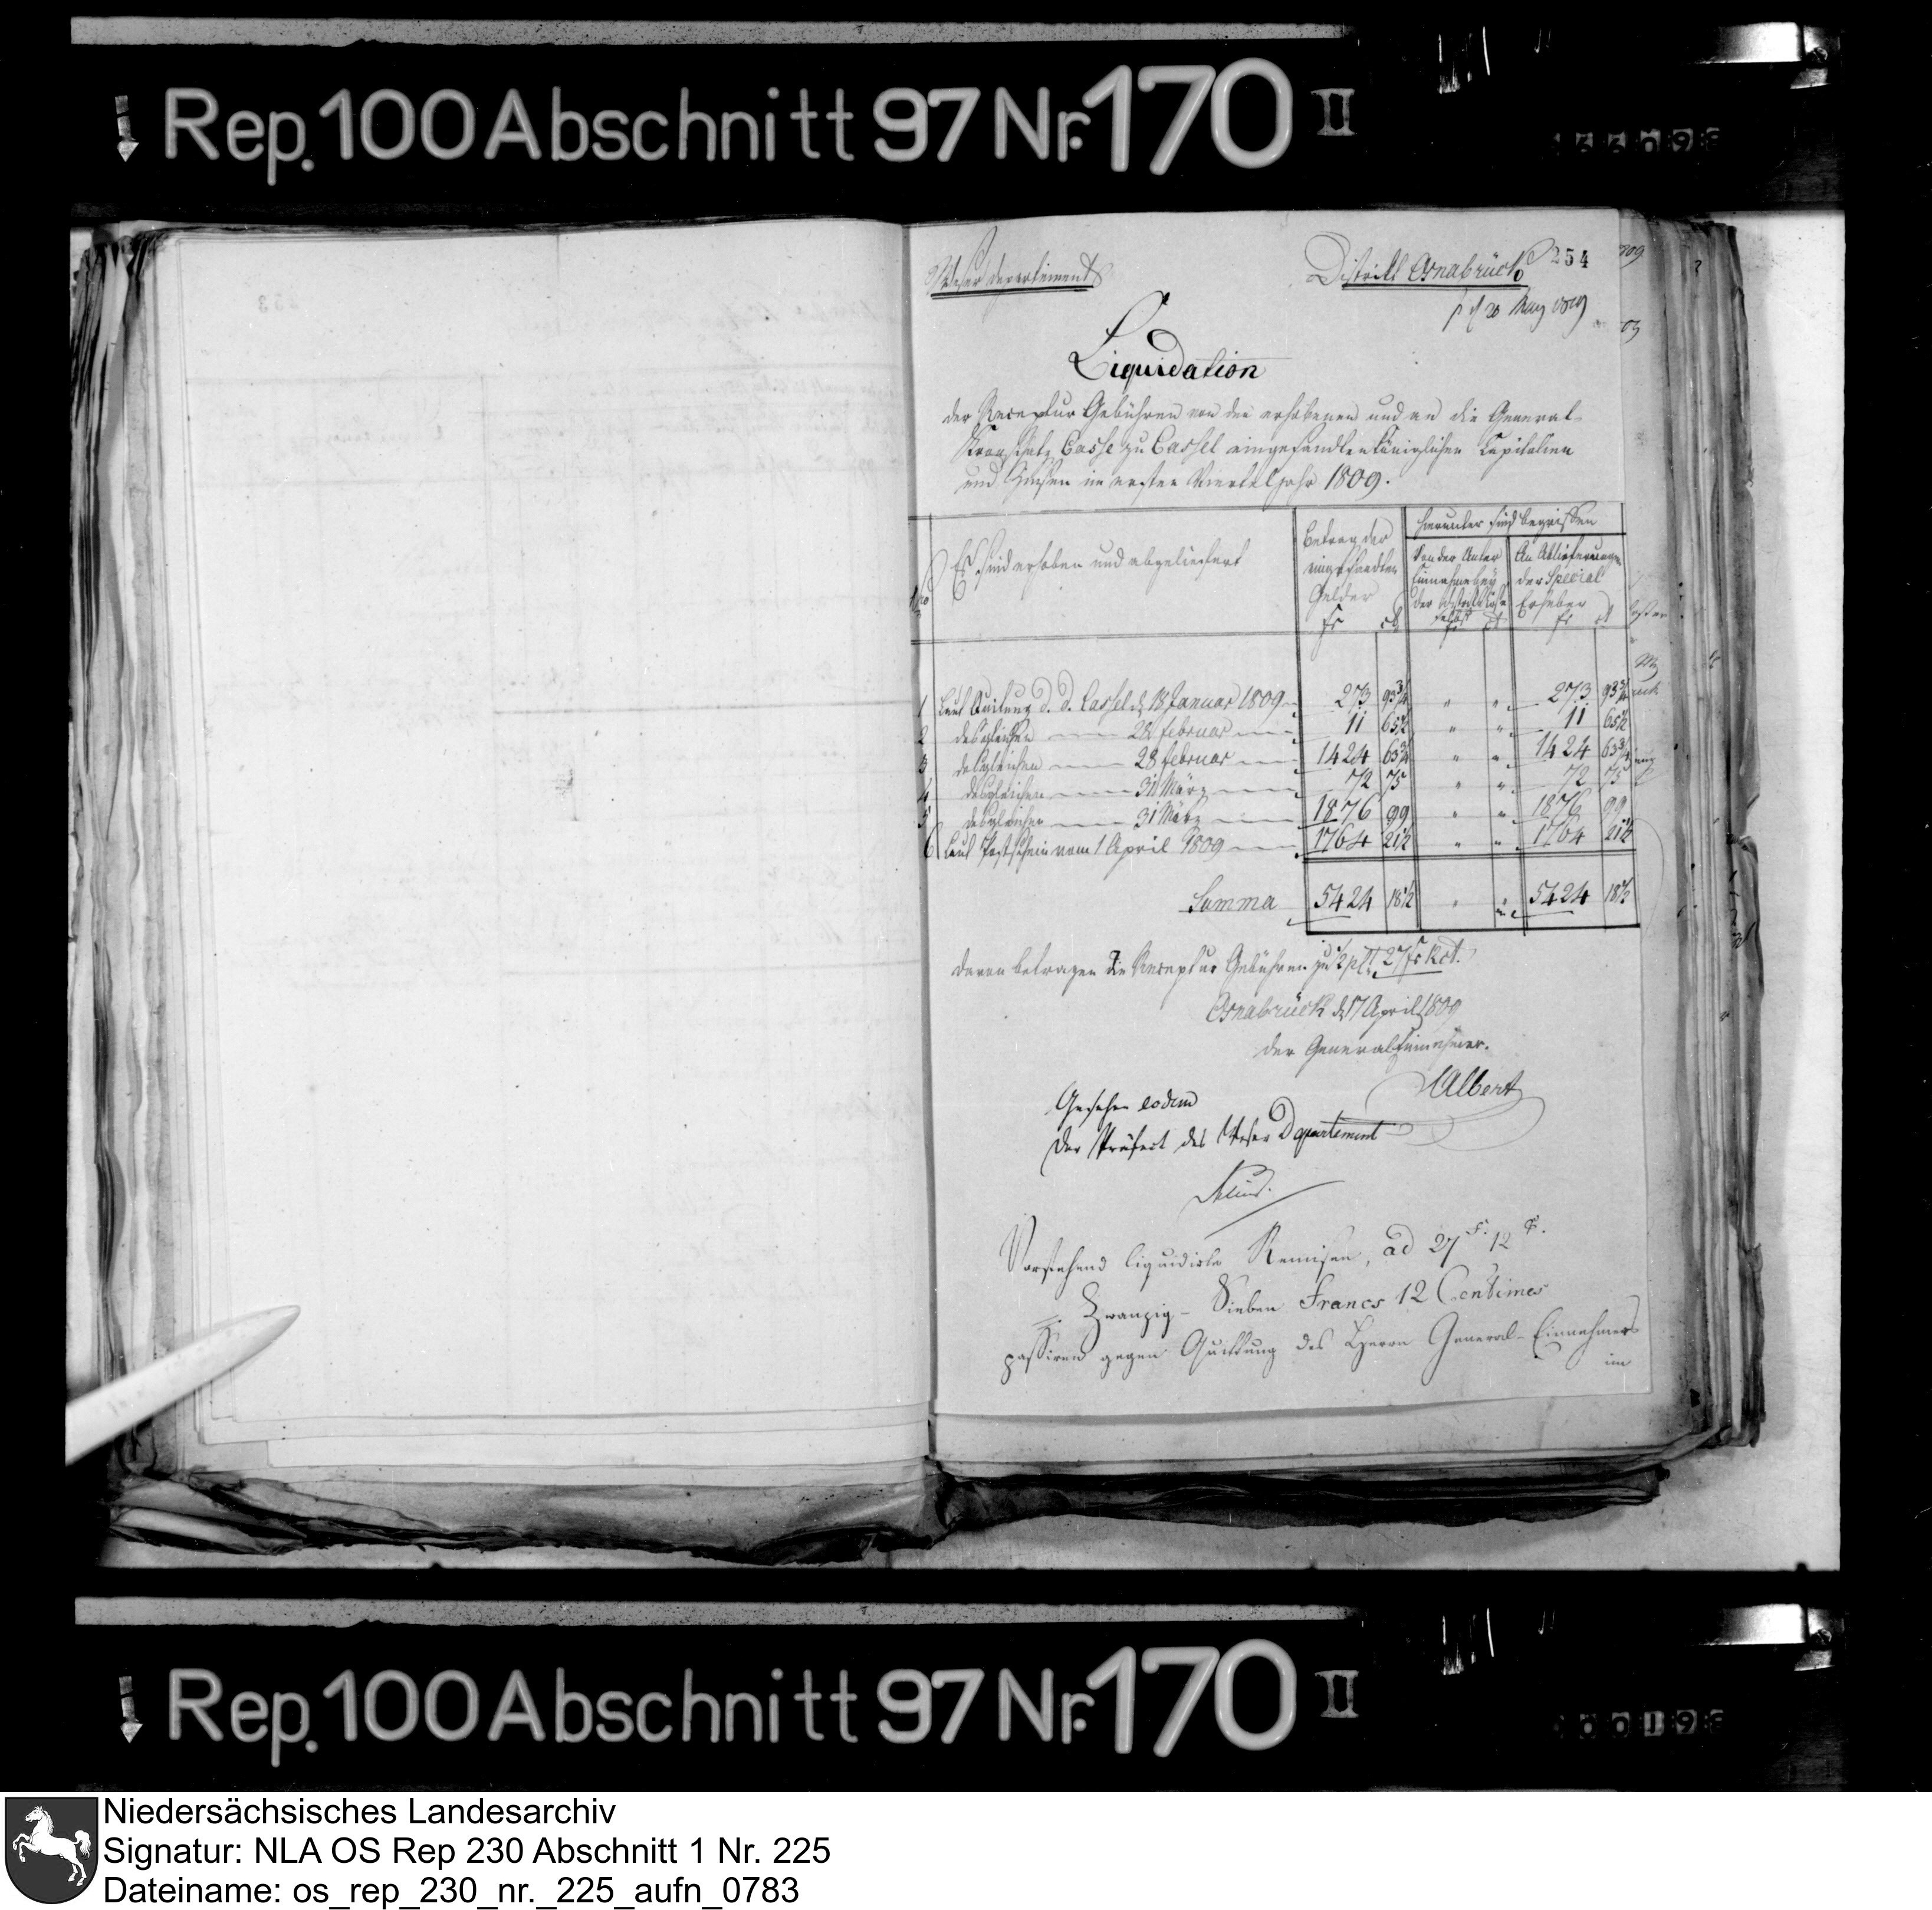 Rep. 100 Abschnitt 97 Nr. 170 II
Weser Departement
District Osnabrück 254
20 May 1809
Liquidation
der Receptur Gebühren von den erhobenen und an die General-
Casse zu Cassel eingesandten Königlichen Capitalien
und Zinsen im ersten Vierteljahr 1809.
Nro
Es sind erhoben und abgeliefert
Betrag der eingesandten Gelder
fr ct
Hierunter sind begriffen
Von der Unter Einnahme bey der selbst
fr ct
An Ablieferungen der Special Erheber
fr ct
1 Laut Quitung d. d. Cassel d 18 Januar 1809 273 93¾ " " 273 93¾
2 desgleichen 28 Februar 11 65½ " " 11 65½
3 desgleichen 28 Februar 1424 63¾ " " 1424 63¾
4 desgleichen 31 März 72 75 " " 72 75
5 desgleichen 31 März 1876 99 " " 1876 99
6 Laut Postschein vom 1 April 1809 1764 21½ " " 1764 21½
Summa 5424 18½ " " 5424 18½
davon betragen die Receptur Gebühren zu ½ pCt 27 fr 12 ct.
Osnabrück d 17 April 1809
der General Einnehmer.
Albert
Gesehen eodem
Der Präfect des Weser Departement
Vorstehend liquidirte Remisen, ad 27 F. 12 C.
Zwanzig-Sieben Francs 12 Centimes
passiren gegen Quittung des Herrn General-Einnehmers
im
Rep. 100 Abschnitt 97 Nr. 170 II
Niedersächsisches Landesarchiv
Signatur: NLA OS Rep 230 Abschnitt 1 Nr. 225
Dateiname: os_rep_230_nr._225_aufn_0783